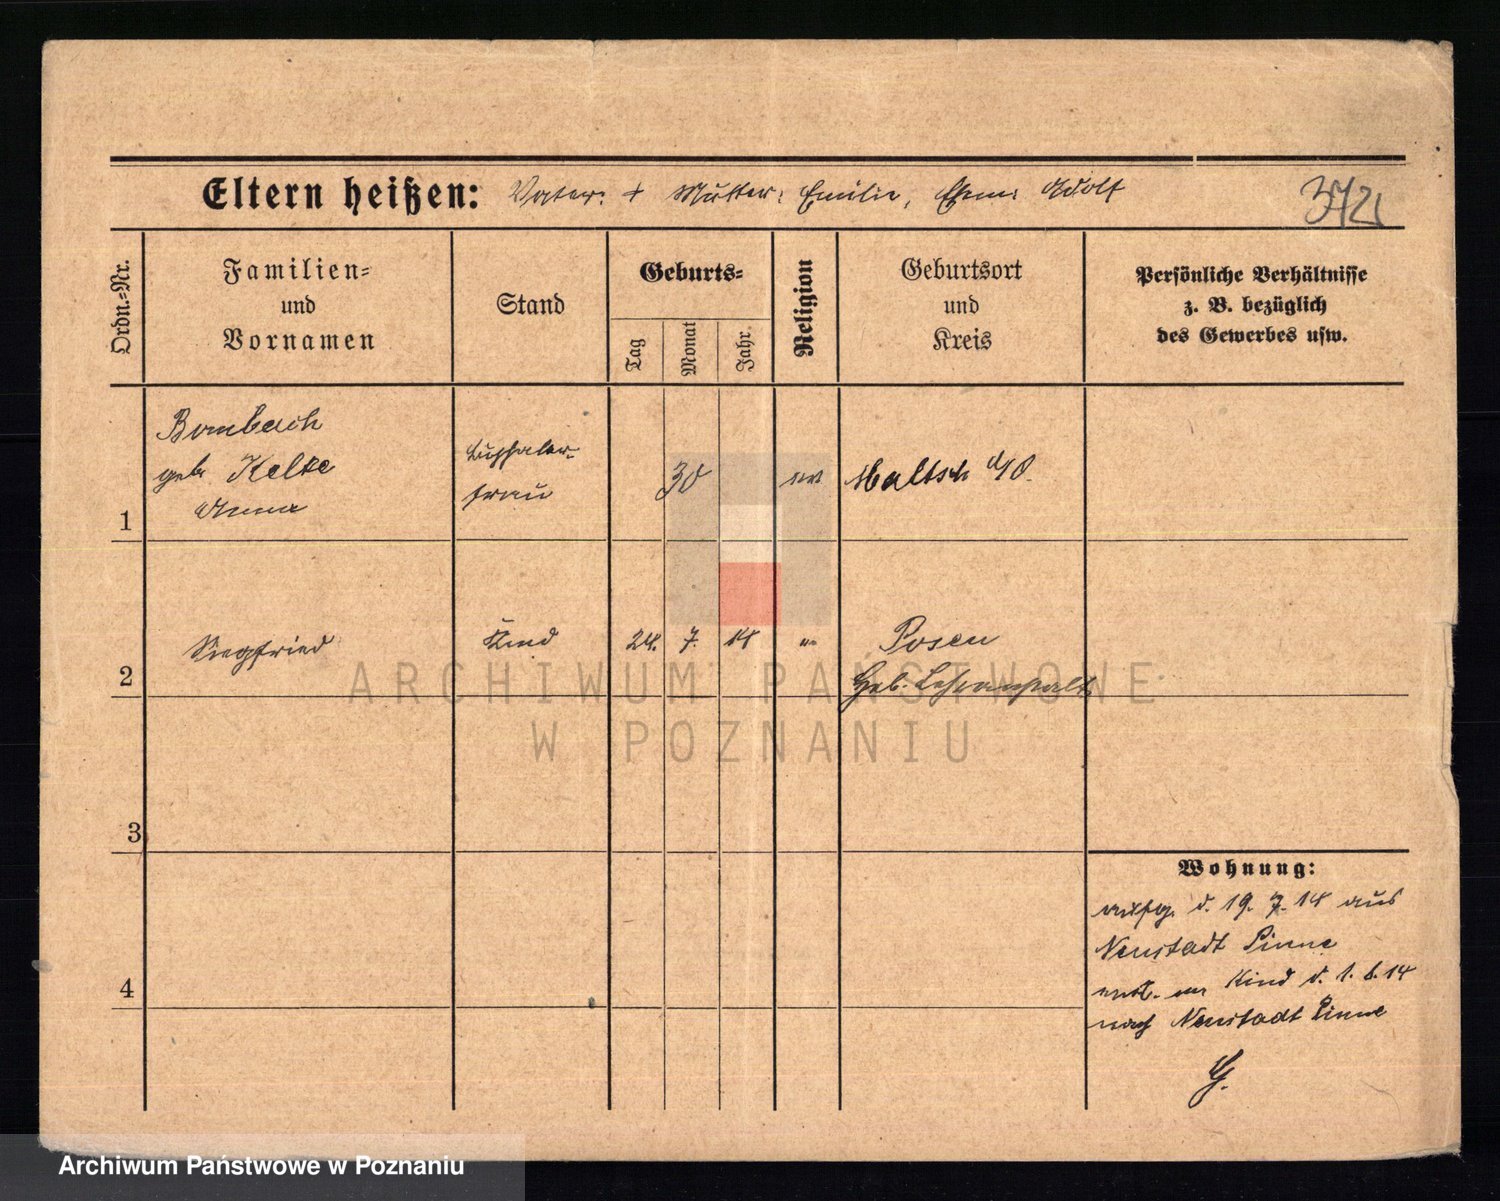 Eltern heißen: Vater: + Mutter: Emilie, Ehem: Adolf
3721
Ordn.-Nr.
Familien-
und
Vornamen
Stand
Geburts-
Tag
Monat
Jahr
Religion
Geburtsort
und
Kreis
Persönliche Verhältnisse
z. B. bezüglich
des Gewerbes usw.
1
Bombach
geb. Kelke
Anna
frau
30
ev
Maltsch a/O.
2
Siegfried
Kind
24. 7. 14
"
Posen
Heb. Lehranstalt
3
4
Wohnung:
aufg. d. 19. 7. 14 aus
Neustadt Pinne
entl. m Kind d. 1. 8. 14
nach Neustadt Pinne
G.
ARCHIWUM PAŃSTWOWE
W POZNANIU
Archiwum Państwowe w Poznaniu